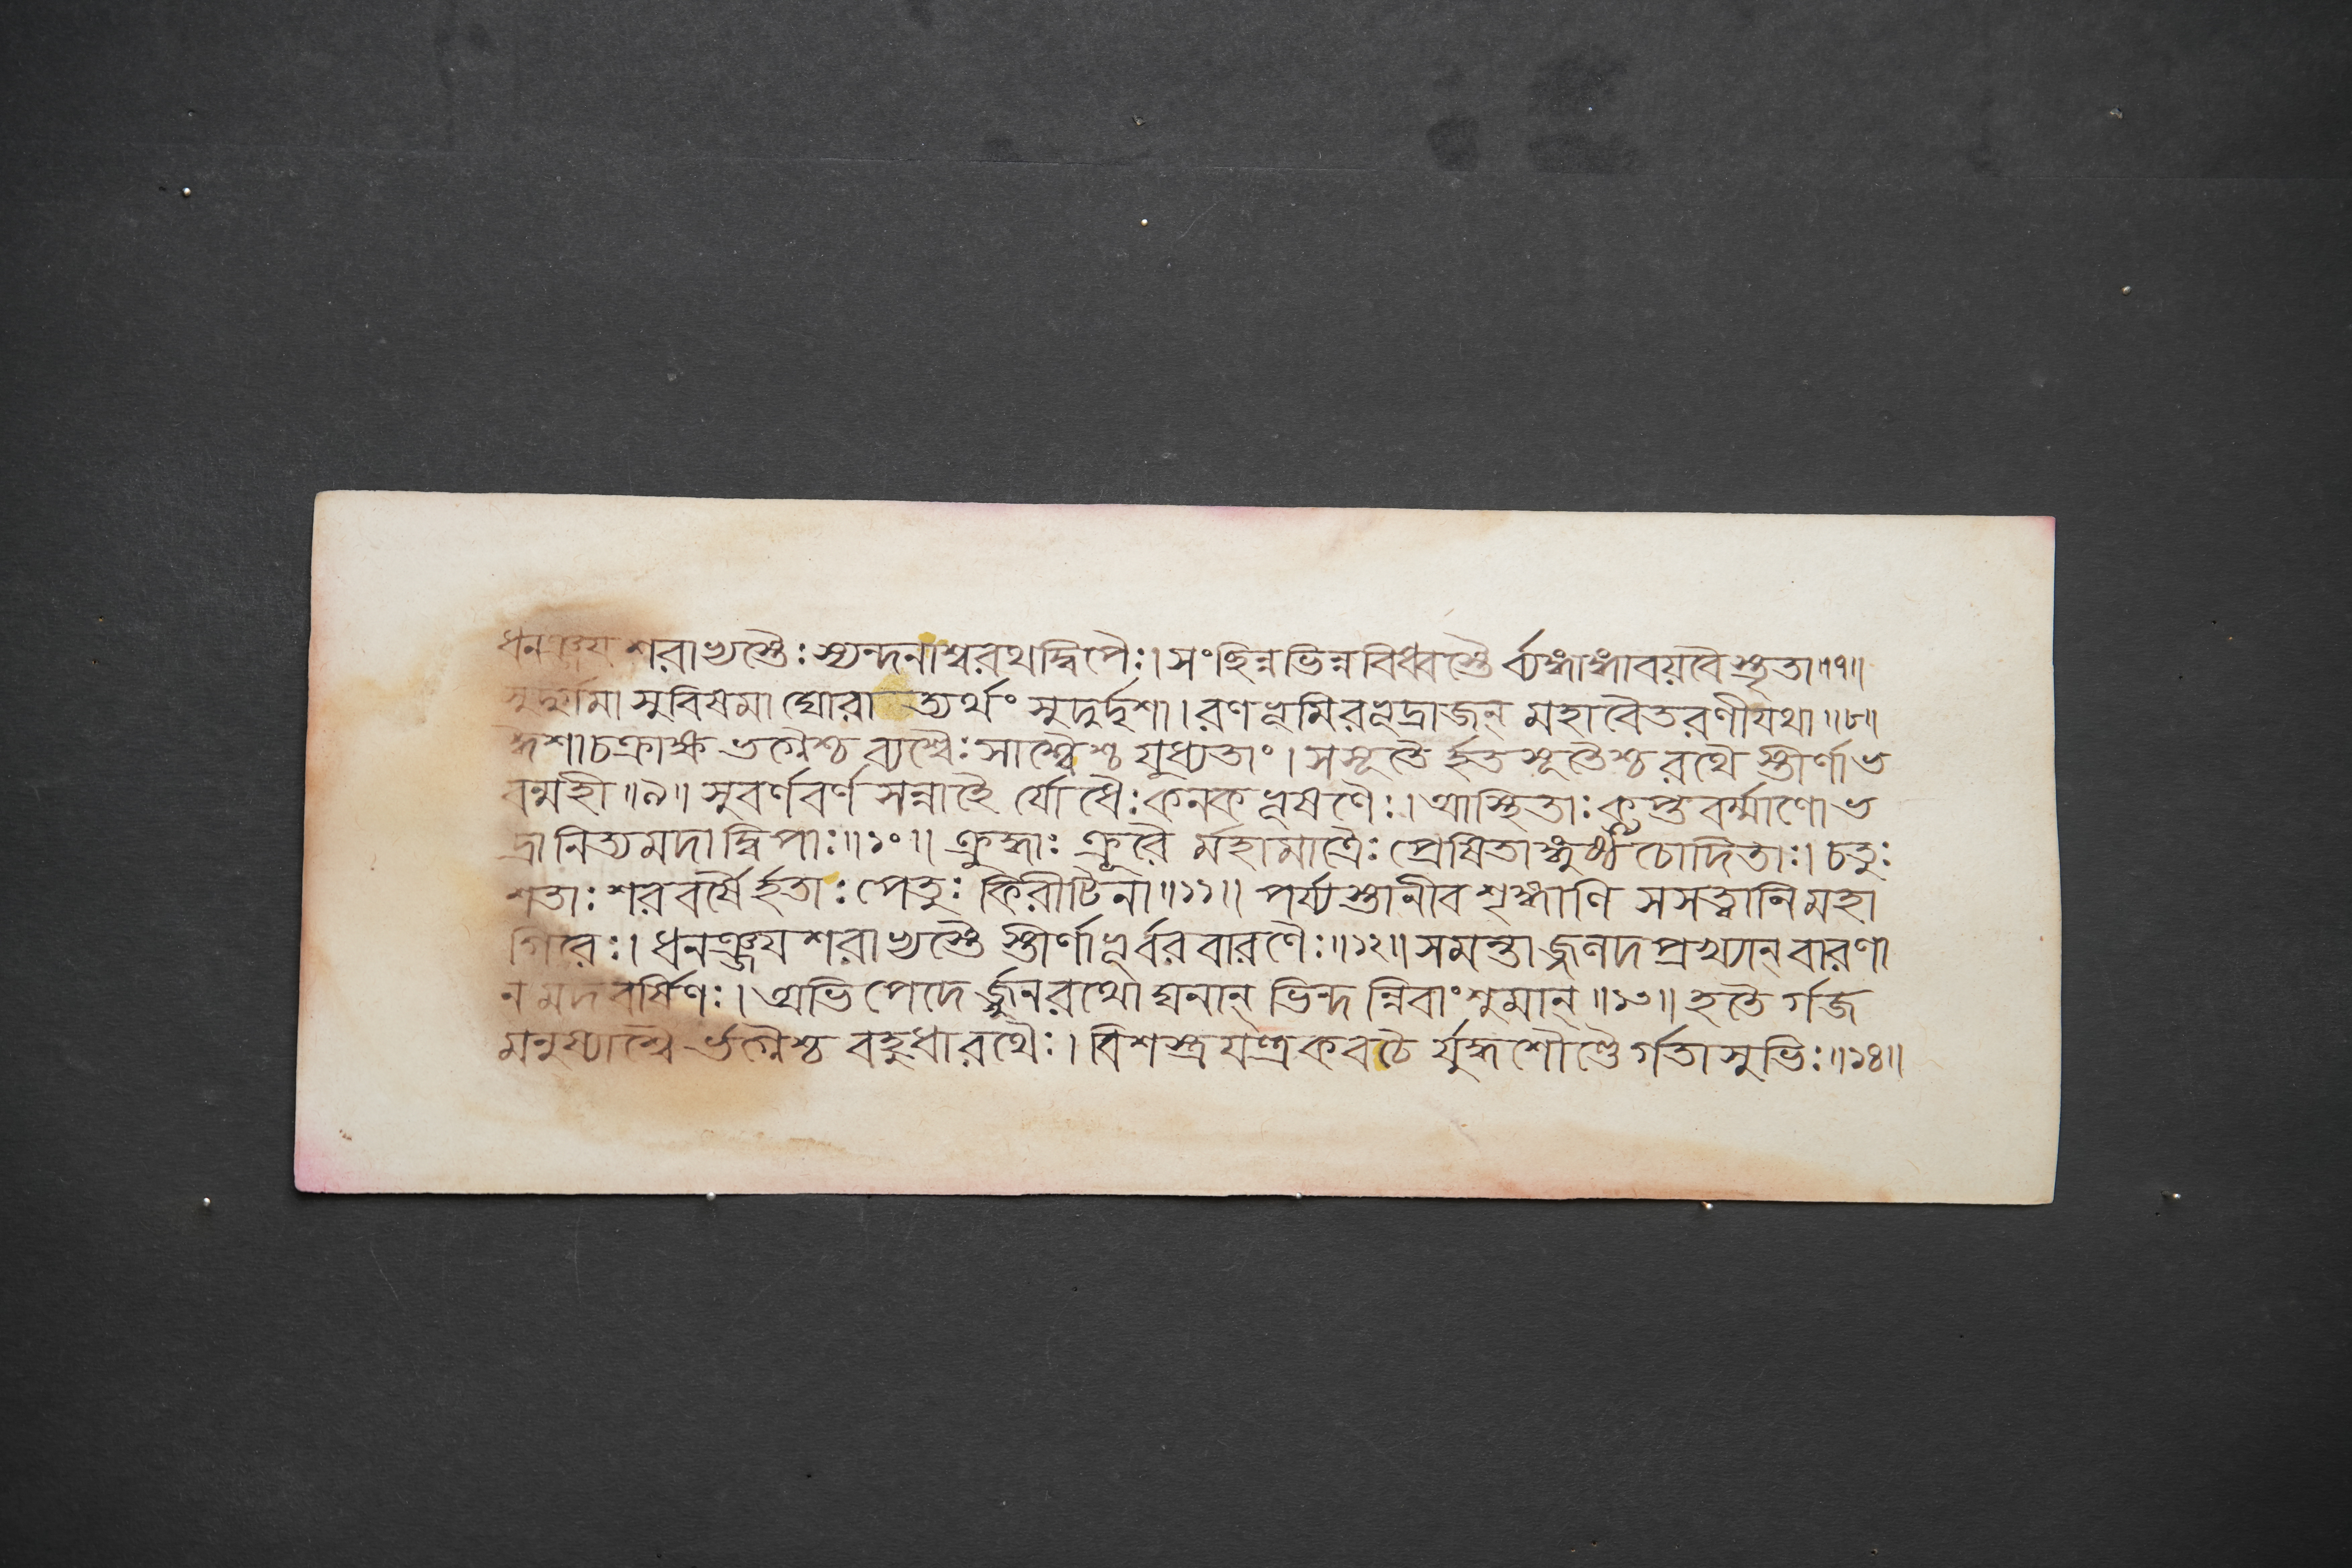 ধনঞ্জয শরাখ্যস্তৈঃ স্যন্দনাশ্বরথদ্বিপৈঃ। সংছিন্নভিন্নবিধ্বস্তৈ র্ব্যঙ্গাঙ্গাবয়বৈ স্তৃতা॥৭॥
সুদুর্গমা সুবিষমা ঘোরা ত্যর্থং সুদুর্দৃশা। রণভূমিরভূদ্রাজন্ মহাবৈতরণীযথা॥৮॥
ঈশাচক্রাক্ষ ভগ্নৈশ্চ ব্যশ্বৈঃ সাশ্বৈশ্চ যুধ্যতাং। সসূতৈ র্হত সূতৈশ্চ রথৈ স্তীর্ণাভ
বন্মহী॥৯॥ সুবর্ণবর্ণ সন্নাহৈ র্যোধৈঃ কনক ভূষণৈঃ। আস্থিতাঃ কৢপ্তবর্ম্মাণো ভ
দ্রা নিত্যমদা দ্বিপাঃ॥১০॥ ক্রুদ্ধাঃ ক্রূরৈ র্মহামাত্রৈঃ প্রেষিতাঙ্গুষ্ঠচোদিতাঃ। চতুঃ
শতাঃ শরবর্ষৈ র্হতাঃ পেতুঃ কিরীটিনা॥১১॥ পর্য্যস্তানীব শৃঙ্গাণি সসত্ত্বানি মহা
গিরেঃ। ধনঞ্জয শরাখ্যস্তৈ স্তীর্ণাভূর্বরবারণৈঃ॥১২॥ সমন্তাজ্জলদ প্রখ্যান্ বারণা
ন মদবর্ষিণঃ। অভিপেদে র্জ্জুনরথো ঘনান্ ভিন্দ ন্নিবাংশুমান্॥১৩॥ হতৈ র্গজ
মনুষ্যাশ্বৈ র্ভগ্নৈশ্চ বহুধা রথৈঃ। বিশস্ত্রযন্ত্রকবচৈ র্যুদ্ধশৌণ্ডৈ র্গতাসুভিঃ॥১৪॥